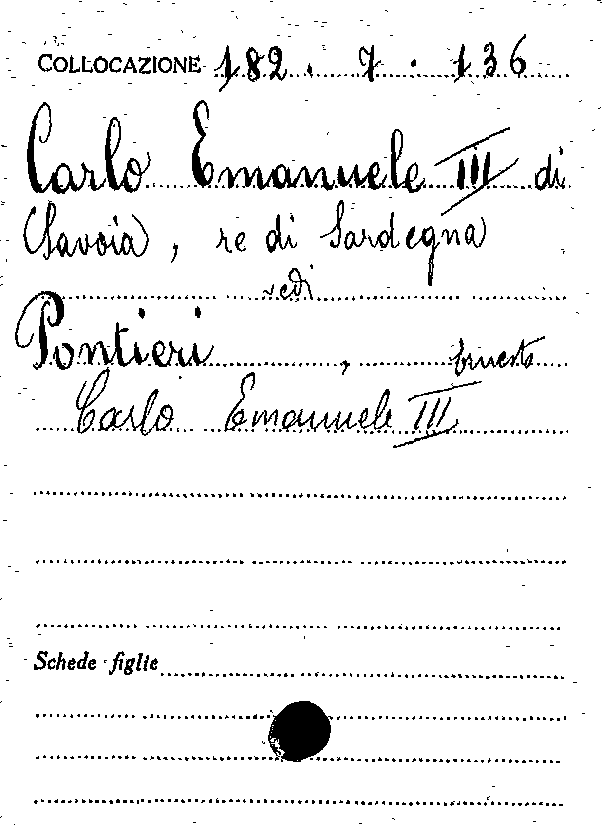 COLLOCAZIONE 182. 7. 136
Carlo Emanuele III di
Savoia, re di Sardegna
vedi
Pontieri, Ernesto
Carlo Emanuele III
Schede figlie